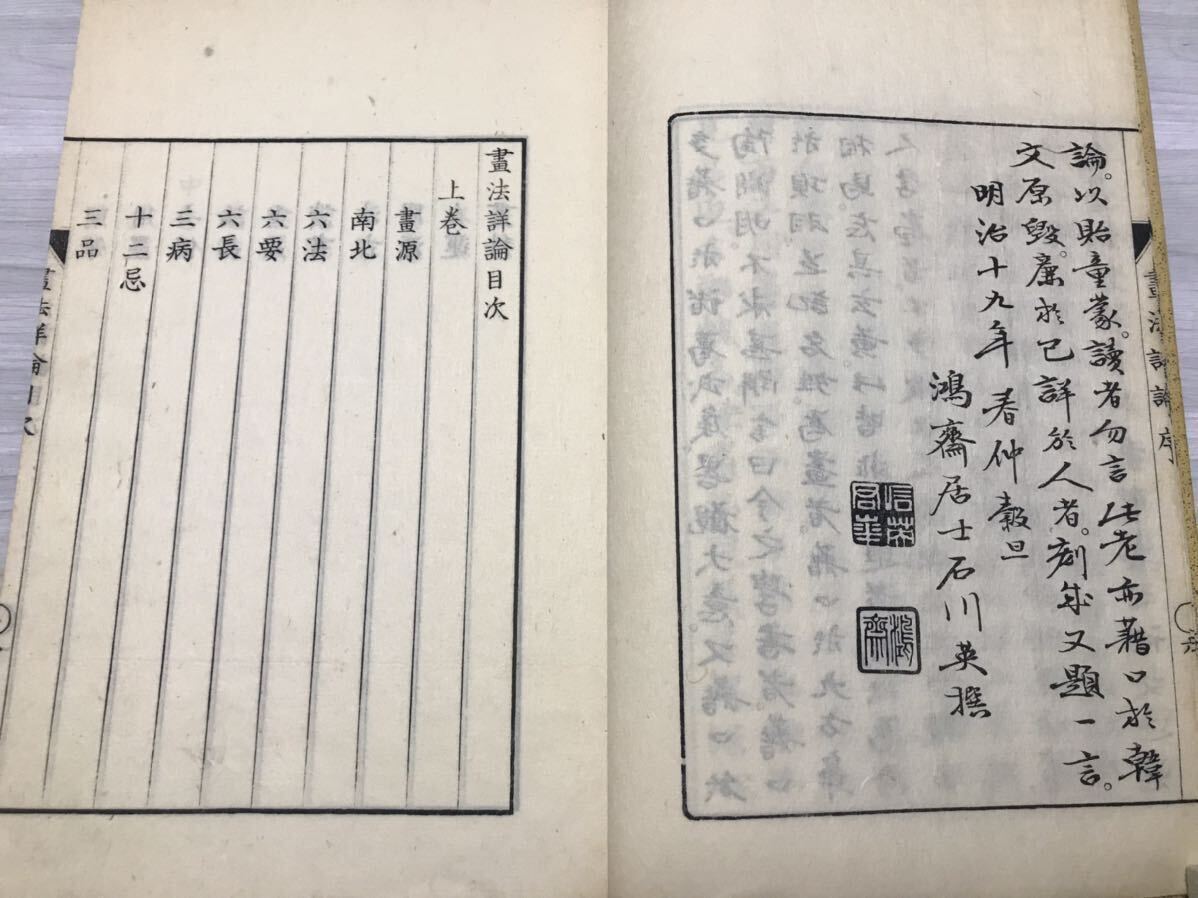 畫法詳論序
論。以貽童蒙。讀者勿言此老亦藉口於韓
文原毀。廉於己詳於人者。刻成又題一言。
明治十九年春仲穀旦
鴻齋居士石川英撰
鴻齋
畫法詳論目次
上卷
畫源
南北
六法
六要
六長
三病
十二忌
三品
畫法詳論目次